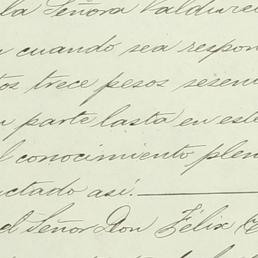 la Señora Valdure
cuando sea respon
tos trece pesos sesen
parte lasta en este
l conocimiento plen
ctado así.
el Señor Don Félix